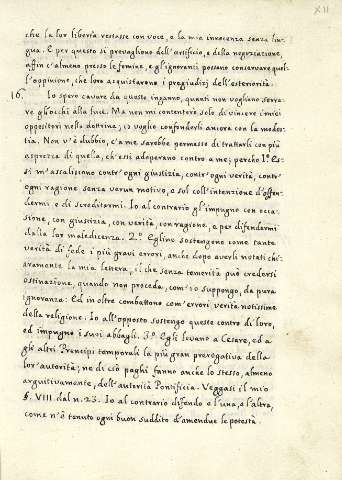 XII
che la lor liberia restasse con voce, e la mia innocenza senza lin-
gua. E per questo si prevagliono dell'artificio, e della negoziazione,
affin ch'almeno presso le femine, e gl'ignoranti possano conservare quel-
l'oppinione, che loro acquistarono i pregiudizj dell'esteriorità.
16. Io spero cavare da questo inganno, quanti non vogliono serra-
re gli occhi alla luce. Ma non mi contenterò solo di vincere i miei
oppositori nella dottrina; io voglio confonderli ancora con la modes-
tia. Non v'è dubbio, ch'a me sarebbe permesso di trattarli con più
asprezza di quella, ch'essi adoperano contro a me; perche 1.° Es-
si m'assaliscono contr'ogni giustizia, contr'ogni verità, contr'
ogni ragione senza verun motivo, e sol coll'intenzione d'offen-
dermi e di screditarmi. Io al contrario gl'impugno con occa-
sione, con giustizia, con verità, con ragione, e per difendermi
dalla lor maledicenza. 2.° Eglino sostengono come tante
verità di fede i più gravi errori, anche dopo averli notati chi-
aramente la mia lettera, il che senza temerità può credersi
ostinazione, quando non proceda, com'io suppongo, da pura
ignoranza: Ed in oltre combattono com'errori verità notissime
della religione. Io all'opposto sostengo queste contro di loro,
ed impugno i suoi abbagli. 3.° Egli levano a Cesare, ed a
gli altri Prencipi temporali la più gran prerogativa della
lor autorità; ne di ciò paghi fanno anche lo stesso, almeno
arguitivamente, dell'autorità Pontificia. Veggasi il mio
§. VIII dal n. 23. Io al contrario difendo e l'una, e l'altra,
come n'è tenuto ogni buon suddito d'amendue le potestà.